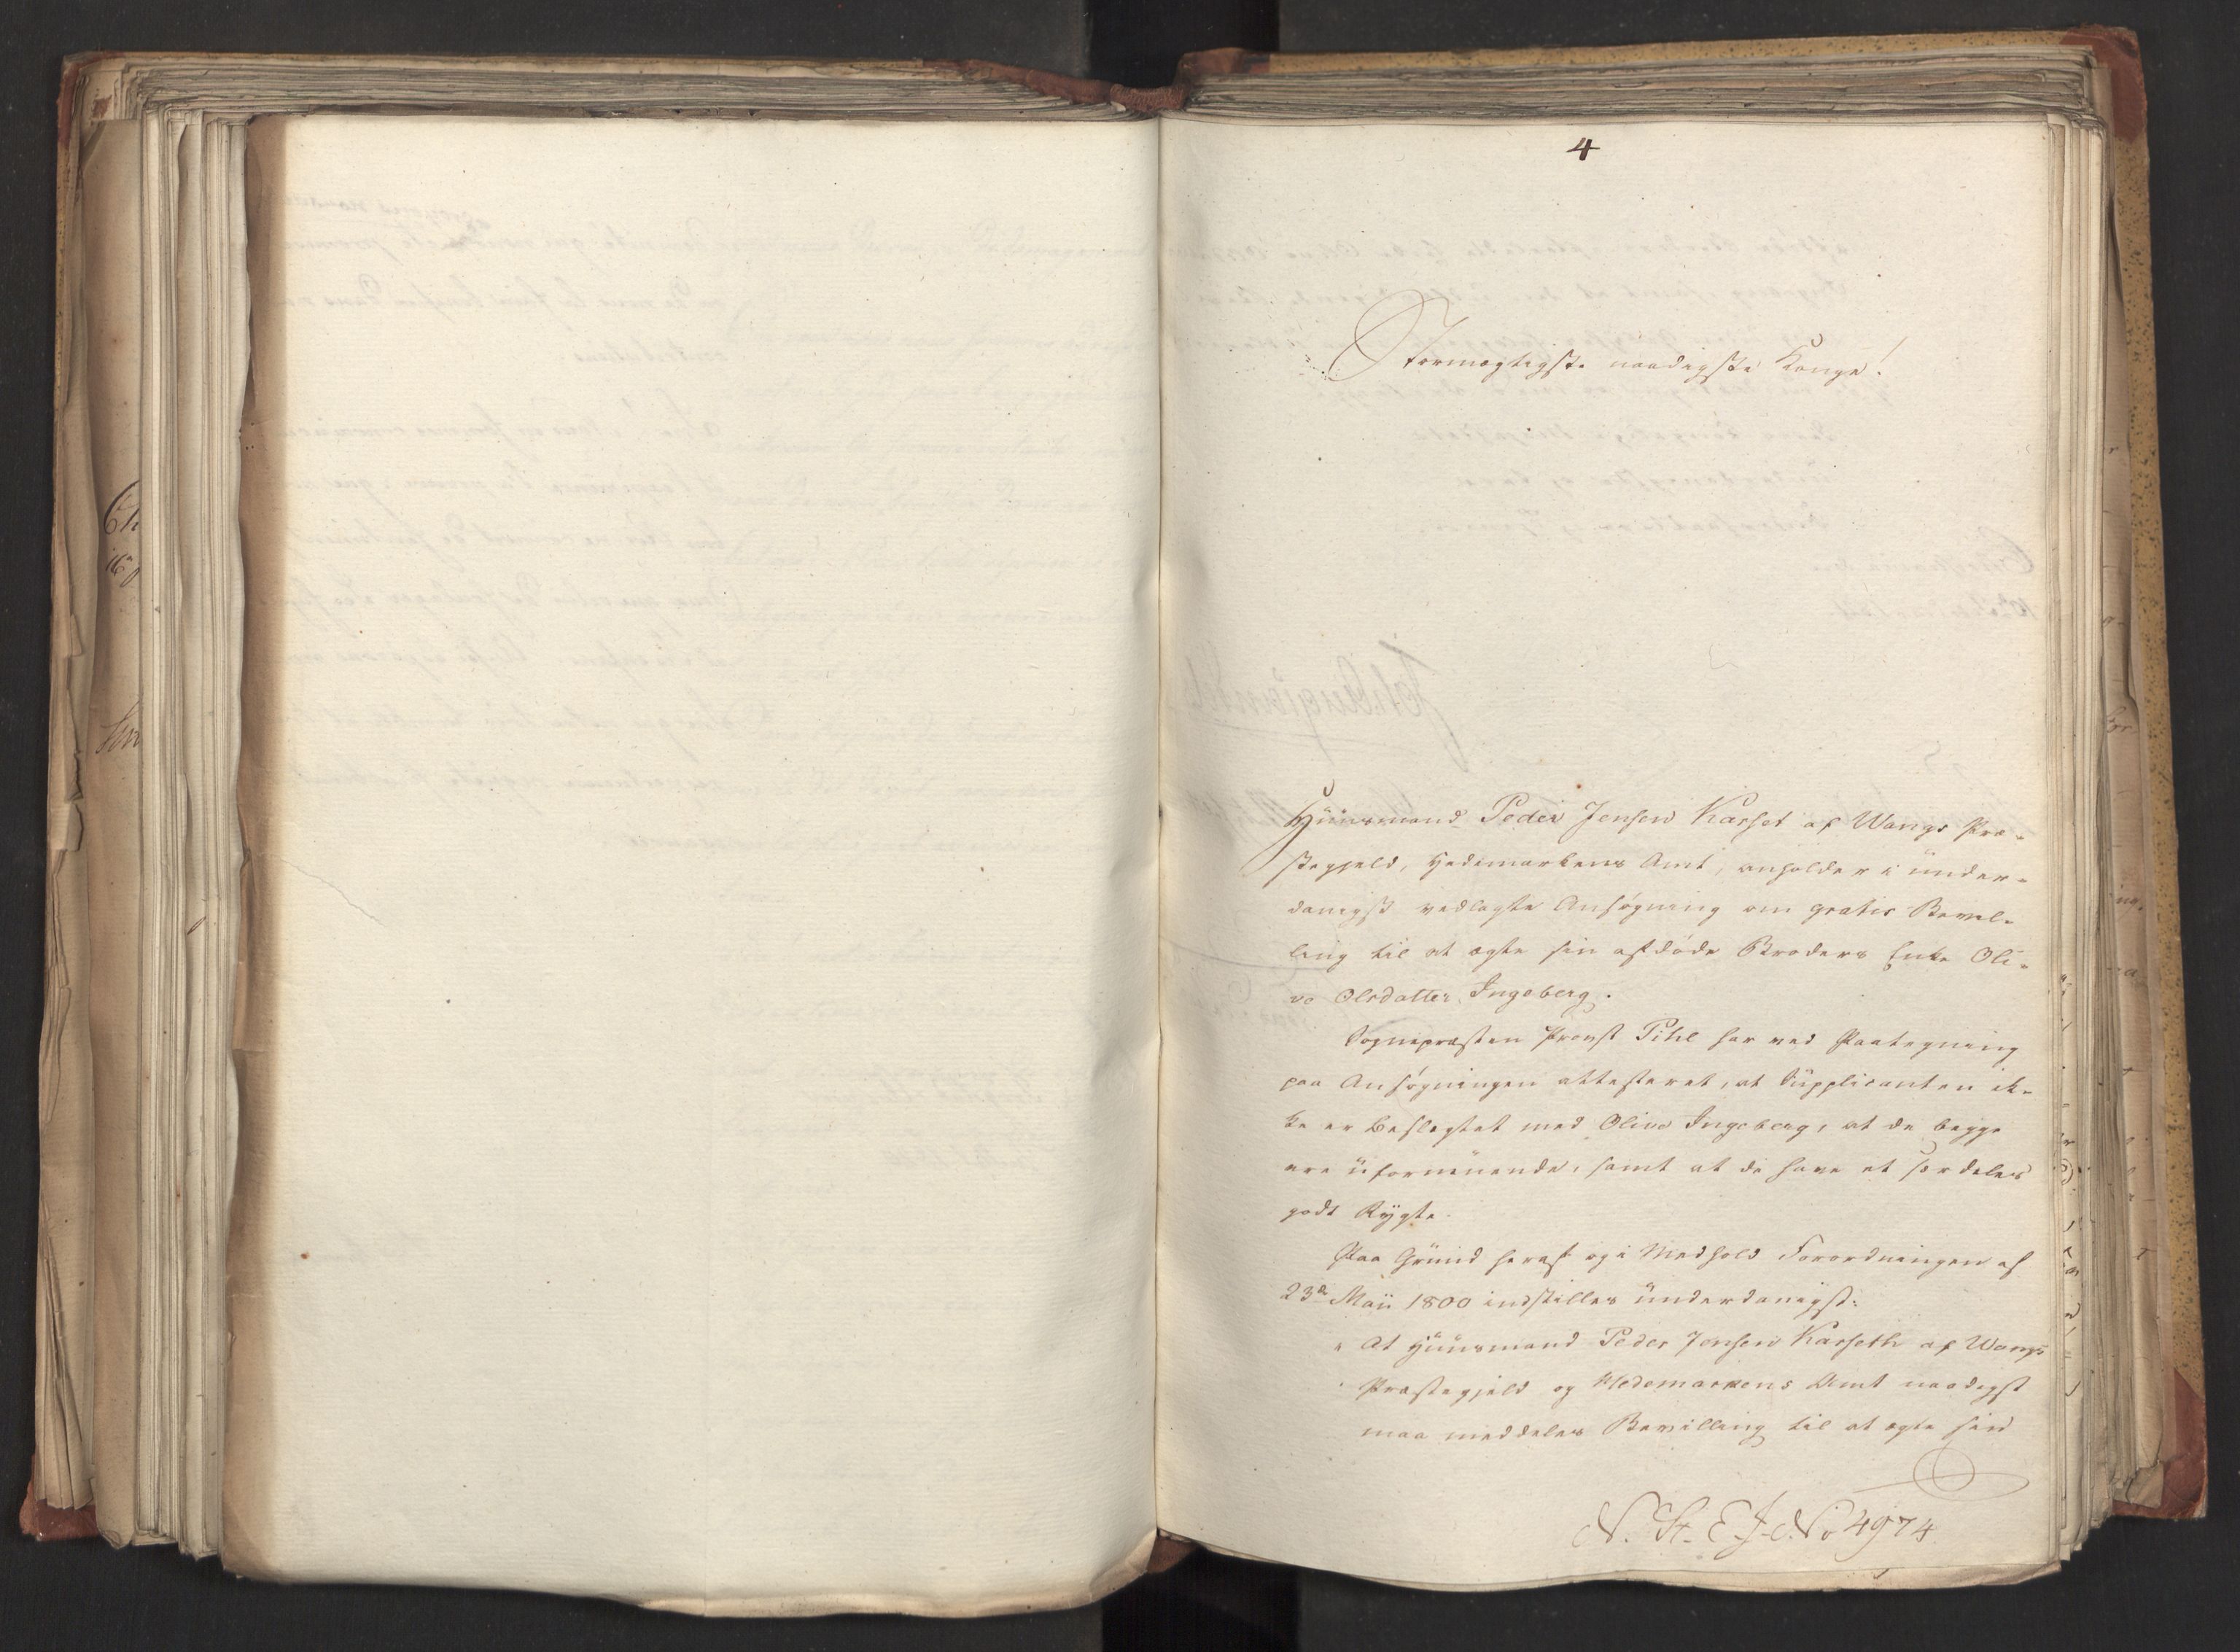 4
Stormægtigste naadigste Konge!
Huusmand Peder Jensen Karset af Wangs Præ-
stegjeld, Hedemarkens Amt, anholder i under-
danigst vedlagte Ansøgning om gratis Bevil-
ling til at ægte sin afdøde Broders Enke Oli-
va Olsdatter Ingeberg.
Sognepræsten Provst Pihl har ved Paategning
paa Ansøgningen attesteret, at Supplicanten ik-
ke er beslægtet med Oliva Ingeberg, at de begge
ere uformuende, samt at de have et særdeles
godt Rygte.
Paa Grund heraf og i Medhold Forordningen af
23de Maii 1800 indstilles underdanigst:
" At Huusmand Peder Jensen Karseth af Wangs
" Præstegjeld og Hedemarkens Amt naadigst
maa meddeles Bevilling til at ægte sin
N. St. E. J. No 4974